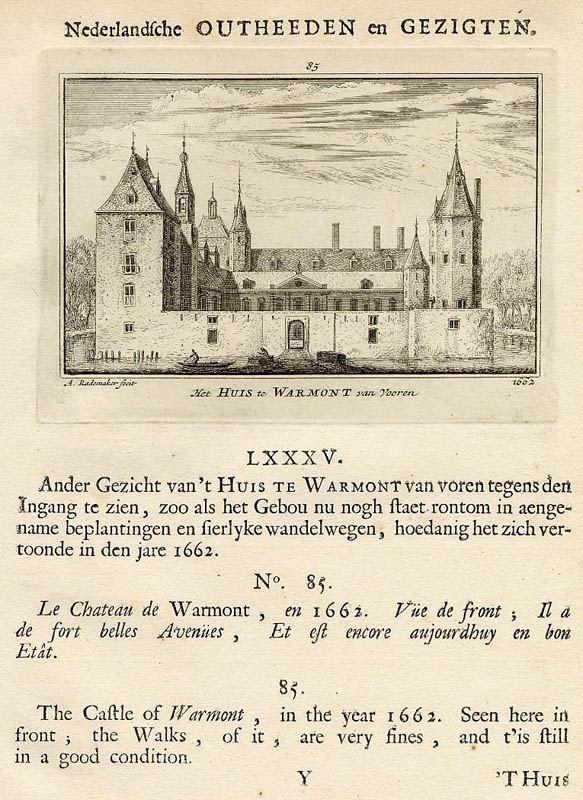 Nederlandſche OUTHEEDEN en GEZIGTEN.
85
A. Rademaker fecit
Het HUIS te WARMONT van Vooren
1662
LXXXV.
Ander Gezicht van 't HUIS TE WARMONT van voren tegens den
Ingang te zien, zoo als het Gebou nu nogh ſtaet rontom in aenge-
name beplantingen en ſierlyke wandelwegen, hoedanig het zich ver-
toonde in den jare 1662.
No. 85.
Le Chateau de Warmont, en 1662. Vüe de front; Il a
de fort belles Avenües, Et eſt encore aujourdhuy en bon
Etât.
85.
The Caſtle of Warmont, in the year 1662. Seen here in
front; the Walks, of it, are very fines, and t'is ſtill
in a good condition.
Y 'T HUIS